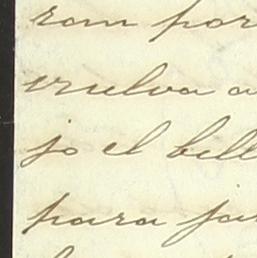 ram por
vuelva a
jo el bill
para ja